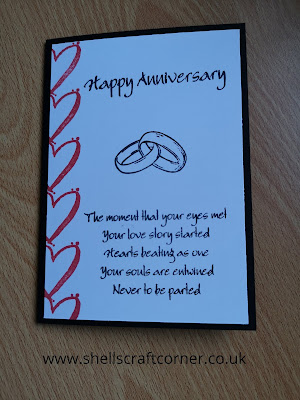 Happy Anniversary
The moment that your eyes met
Your love story started
Hearts beating as one
Your souls are entwined
Never to be parted
www.shellscraftcorner.co.uk